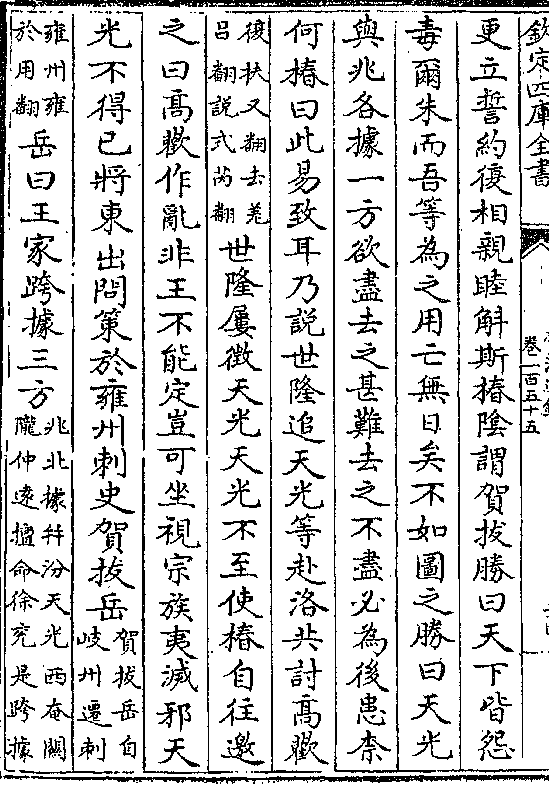 欽定四庫全書
卷一百五十五
更立誓約復相親睦斛斯椿陰謂賀拔勝曰天下皆怨
毒爾朱而吾等為之用亡無日矣不如圖之勝曰天光
與兆各據一方欲盡去之甚難去之不盡必為後患柰
何椿曰此易致耳乃說世隆追天光等赴洛共討高歡
復扶又翻去羌
呂翻說式芮翻
世隆屢徵天光天光不至使椿自往邀
之曰高歡作亂非王不能定豈可坐視宗族夷滅邪天
光不得已將東出問策於雍州刺史賀拔岳
賀拔岳自
岐州遷刺
雍州雍
於用翻
岳曰王家跨據三方
兆北據并汾天光西奄關
隴仲遠擅命徐兖是跨據